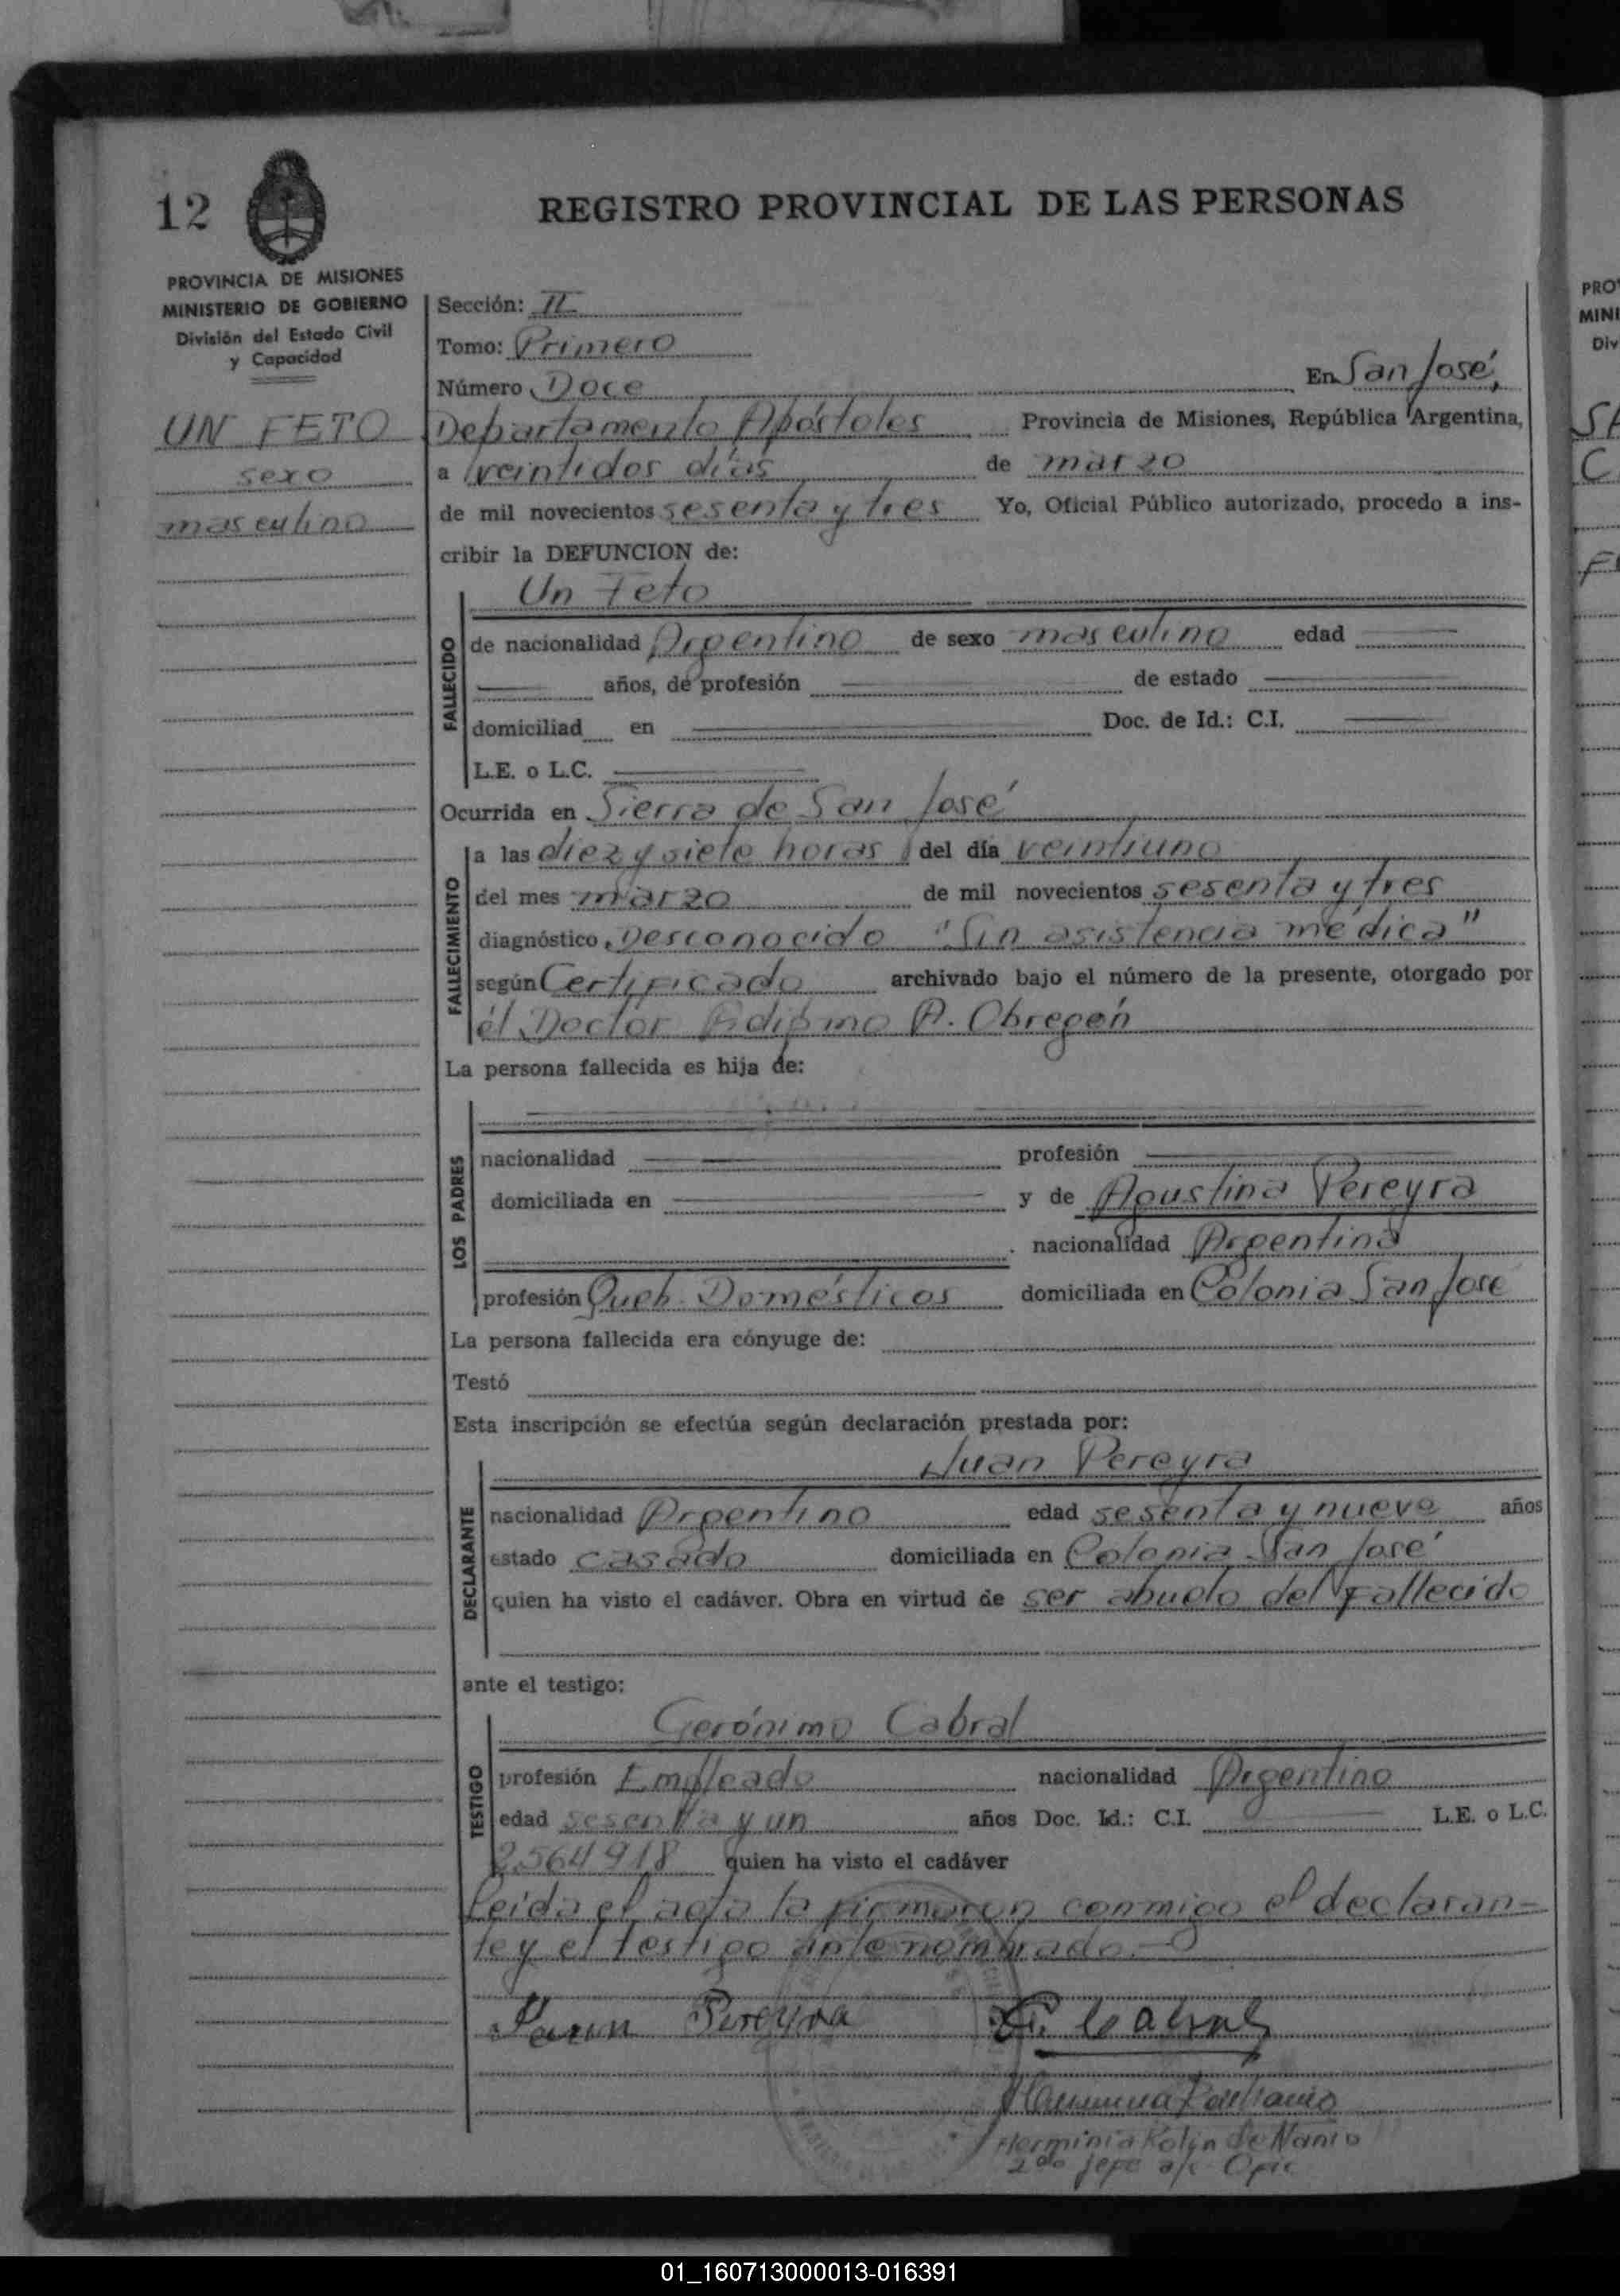 12
REGISTRO PROVINCIAL DE LAS PERSONAS
PROVINCIA DE MISIONES
MINISTERIO DE GOBIERNO
División del Estado Civil
y Capacidad
UN FETO
sexo
masculino
Sección: II
Tomo: Primero
Número Doce En San José,
Departamento Apóstoles Provincia de Misiones, República Argentina,
a veintidos días de marzo
de mil novecientos sesenta y tres Yo, Oficial Público autorizado, procedo a ins-
cribir la DEFUNCION de:
Un Feto
FALLECIDO
de nacionalidad Argentino de sexo masculino edad
años, de profesión de estado
domiciliad en Doc. de Id.: C.I.
L.E. o L.C.
Ocurrida en Sierra de San José
FALLECIMIENTO
a las diez y siete horas del día veintiuno
del mes marzo de mil novecientos sesenta y tres
diagnóstico Desconocido "Sin asistencia médica"
según Certificado archivado bajo el número de la presente, otorgado por
él Doctor A. Obregón
La persona fallecida es hija de:
LOS PADRES
nacionalidad profesión
domiciliada en y de Agustina Pereyra
nacionalidad Argentina
profesión Queh. Domésticos domiciliada en Colonia San José
La persona fallecida era cónyuge de:
Testó
Esta inscripción se efectúa según declaración prestada por:
Juan Pereyra
DECLARANTE
nacionalidad Argentino edad sesenta y nueve años
estado casado domiciliada en Colonia San José
quien ha visto el cadáver. Obra en virtud de ser abuelo del fallecido
ante el testigo:
Gerónimo Cabral
TESTIGO
profesión Empleado nacionalidad Argentino
edad sesenta y un años Doc. Id.: C.I. L.E. o L.C.
2.564918 quien ha visto el cadáver
Leida el acta la firmaron conmigo el declaran-
te y el testigo antenombrado.
Juan Pereyra G. Cabral
Herminia Rolón de Nanio
2do Jefe a/c Ofic
PRO
MINI
Div
01_160713000013-016391